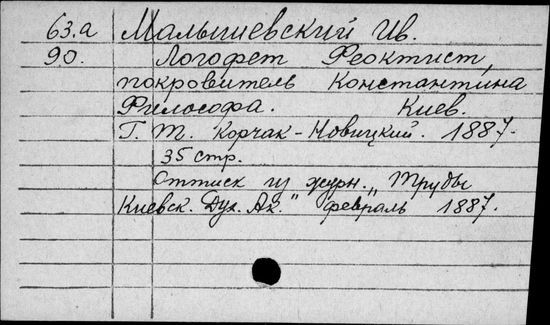 63.а Малышевский Ив.
90. Логофет Феоктист,
покровитель Константина
Философа. Киев.
Г. Т. Корчак-Новицкий. 1887.
35 стр.
Оттиск из журн. „Труды
Киевск. Дух. Ак." февраль 1887.